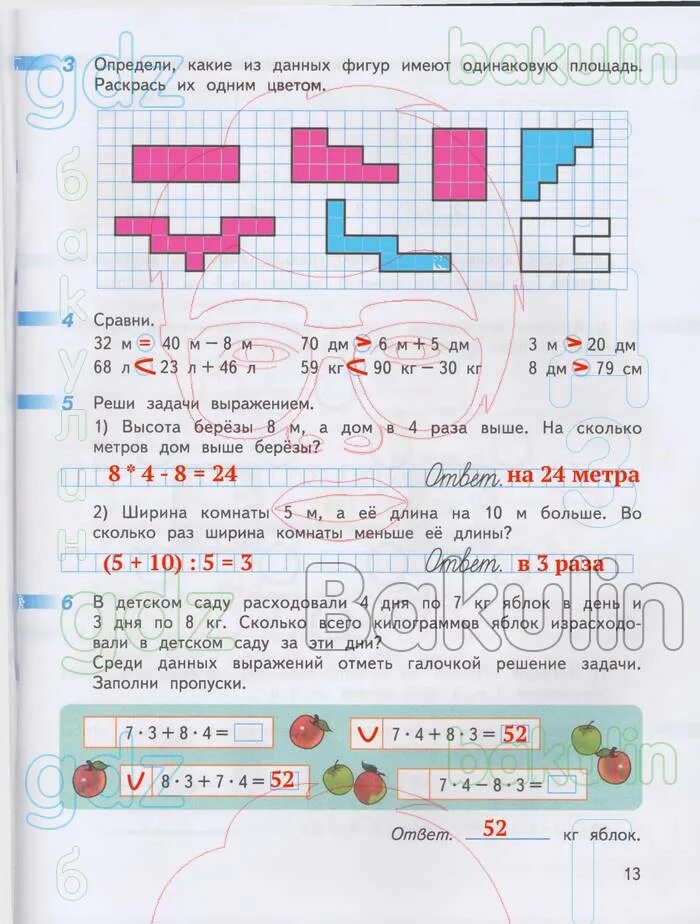 gdz
bakulin
3 Определи, какие из данных фигур имеют одинаковую площадь.
Раскрась их одним цветом.
бакулин
ГДЗ
4 Сравни.
32 м = 40 м − 8 м 70 дм > 6 м + 5 дм 3 м > 20 дм
68 л < 23 л + 46 л 59 кг < 90 кг − 30 кг 8 дм > 79 см
5 Реши задачи выражением.
1) Высота берёзы 8 м, а дом в 4 раза выше. На сколько
метров дом выше берёзы?
8 * 4 - 8 = 24 Ответ. на 24 метра
2) Ширина комнаты 5 м, а её длина на 10 м больше. Во
сколько раз ширина комнаты меньше её длины?
(5 + 10) : 5 = 3 Ответ. в 3 раза
gdz
Bakulin
6 В детском саду расходовали 4 дня по 7 кг яблок в день и
3 дня по 8 кг. Сколько всего килограммов яблок израсходо-
вали в детском саду за эти дни?
Среди данных выражений отметь галочкой решение задачи.
Заполни пропуски.
7 · 3 + 8 · 4 = V 7 · 4 + 8 · 3 = 52
V 8 · 3 + 7 · 4 = 52 7 · 4 − 8 · 3 =
gdz
bakulin
Ответ. 52 кг яблок.
б
13